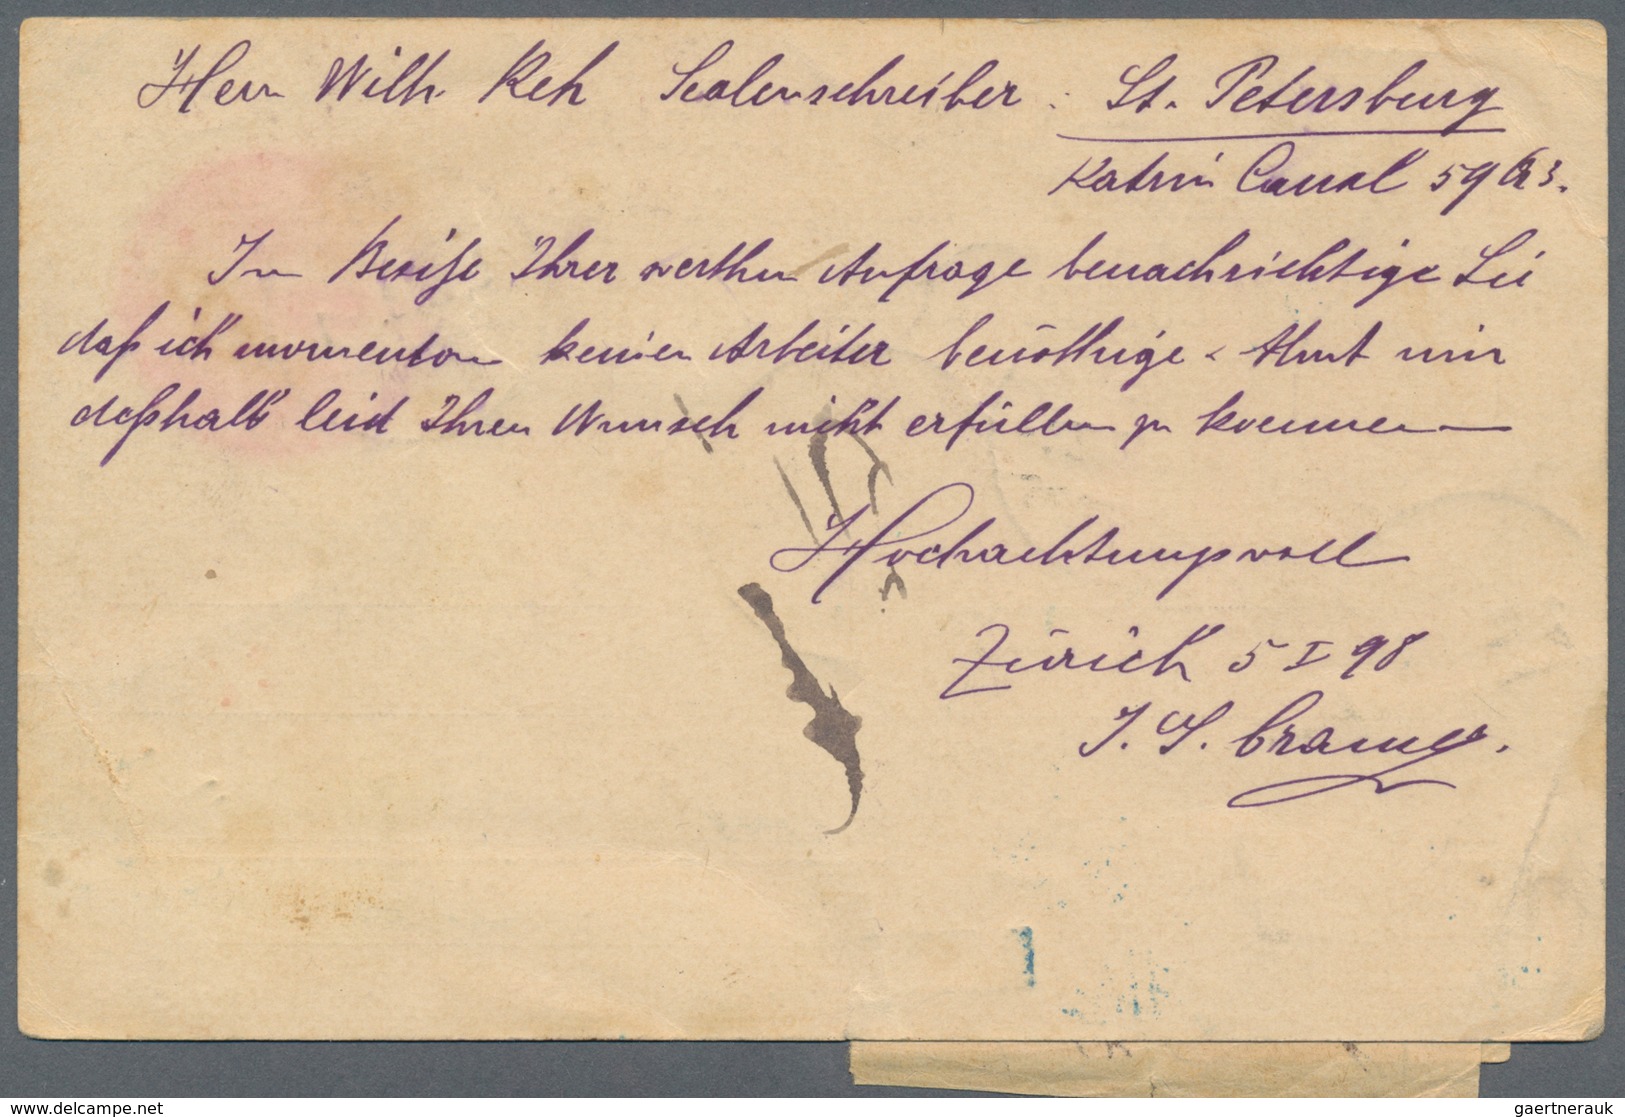 Herrn Wilh. Reh Scalenschreiber. St. Petersburg
Katrin Canal 59
Im Besitze Ihrer werthen Anfrage benachrichtige Sie
daß ich momentan keinen Arbeiter benöthige. Thut mir
deßhalb leid Ihren Wunsch nicht erfüllen zu koennen
Hochachtungsvoll
Zürich 5 I 98
J. S. Cramer.
gaertnerauk
delcampe.net